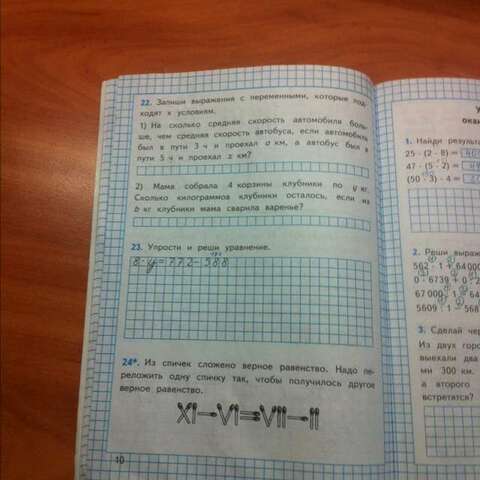 22. Запиши выражения с переменными, которые под-
ходят к условиям.
1) На сколько средняя скорость автомобиля боль-
ше, чем средняя скорость автобуса, если автомобиль
был в пути 3 ч и проехал a км, а автобус был в
пути 5 ч и проехал z км?
2) Мама собрала 4 корзины клубники по y кг.
Сколько килограммов клубники осталось, если из
b кг клубники мама сварила варенье?
23. Упрости и реши уравнение.
8·y=772-588
24*. Из спичек сложено верное равенство. Надо пе-
реложить одну спичку так, чтобы получилось другое
верное равенство.
XI-VI=VII-II
10
1. Найди результа
25 · (2 · 8) =
47 · (5 · 2) =
(50 · 3) · 4 =
2. Реши выраж
562 · 1 + 64 00
0 · 6739 + 0 : 2
67 000 : 1 - 64
5609 : 1 - 568
3. Сделай че
Из двух горо
выехали два
ми 300 км.
а второго
встретятся?